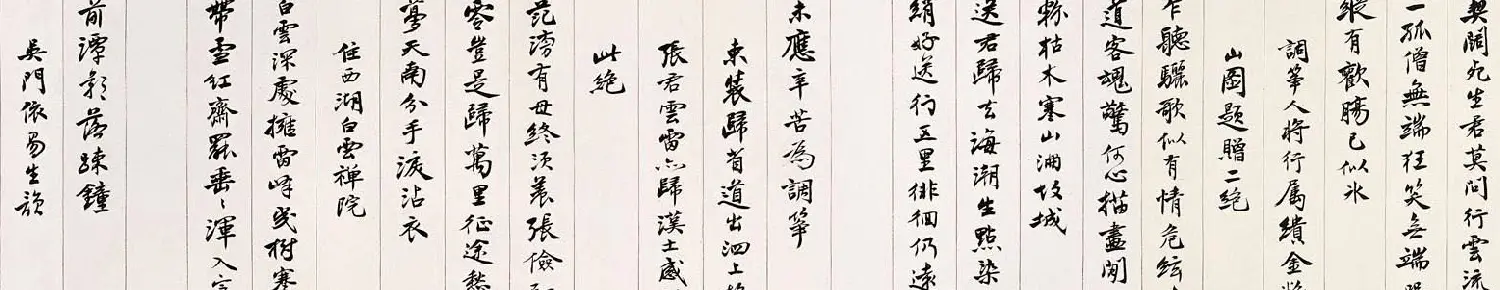 契闊死生君莫問行雲流
一孤僧無端狂笑无端
縱有歡腸已似冰
調箏人將行属繢金粉
山圖題贈二絕
乍聽驪歌似有情危絃
道客魂驚何心描畫閒
粉枯木寒山滿故城
送君歸去海潮生點染
綃好送行五里徘徊仍遠
未應辛苦為調箏
束裝歸省道出泗上
張君雲雷亦歸漢土感
此絕
范滂有母終須養張儉
零豈是歸萬里征途愁
夢天南分手淚沾衣
住西湖白雲禪院
白雲深處擁雷峰幾樹寒
帶雪紅齋罷垂々渾入定
前潭影落疎鐘
吳門依易生韵